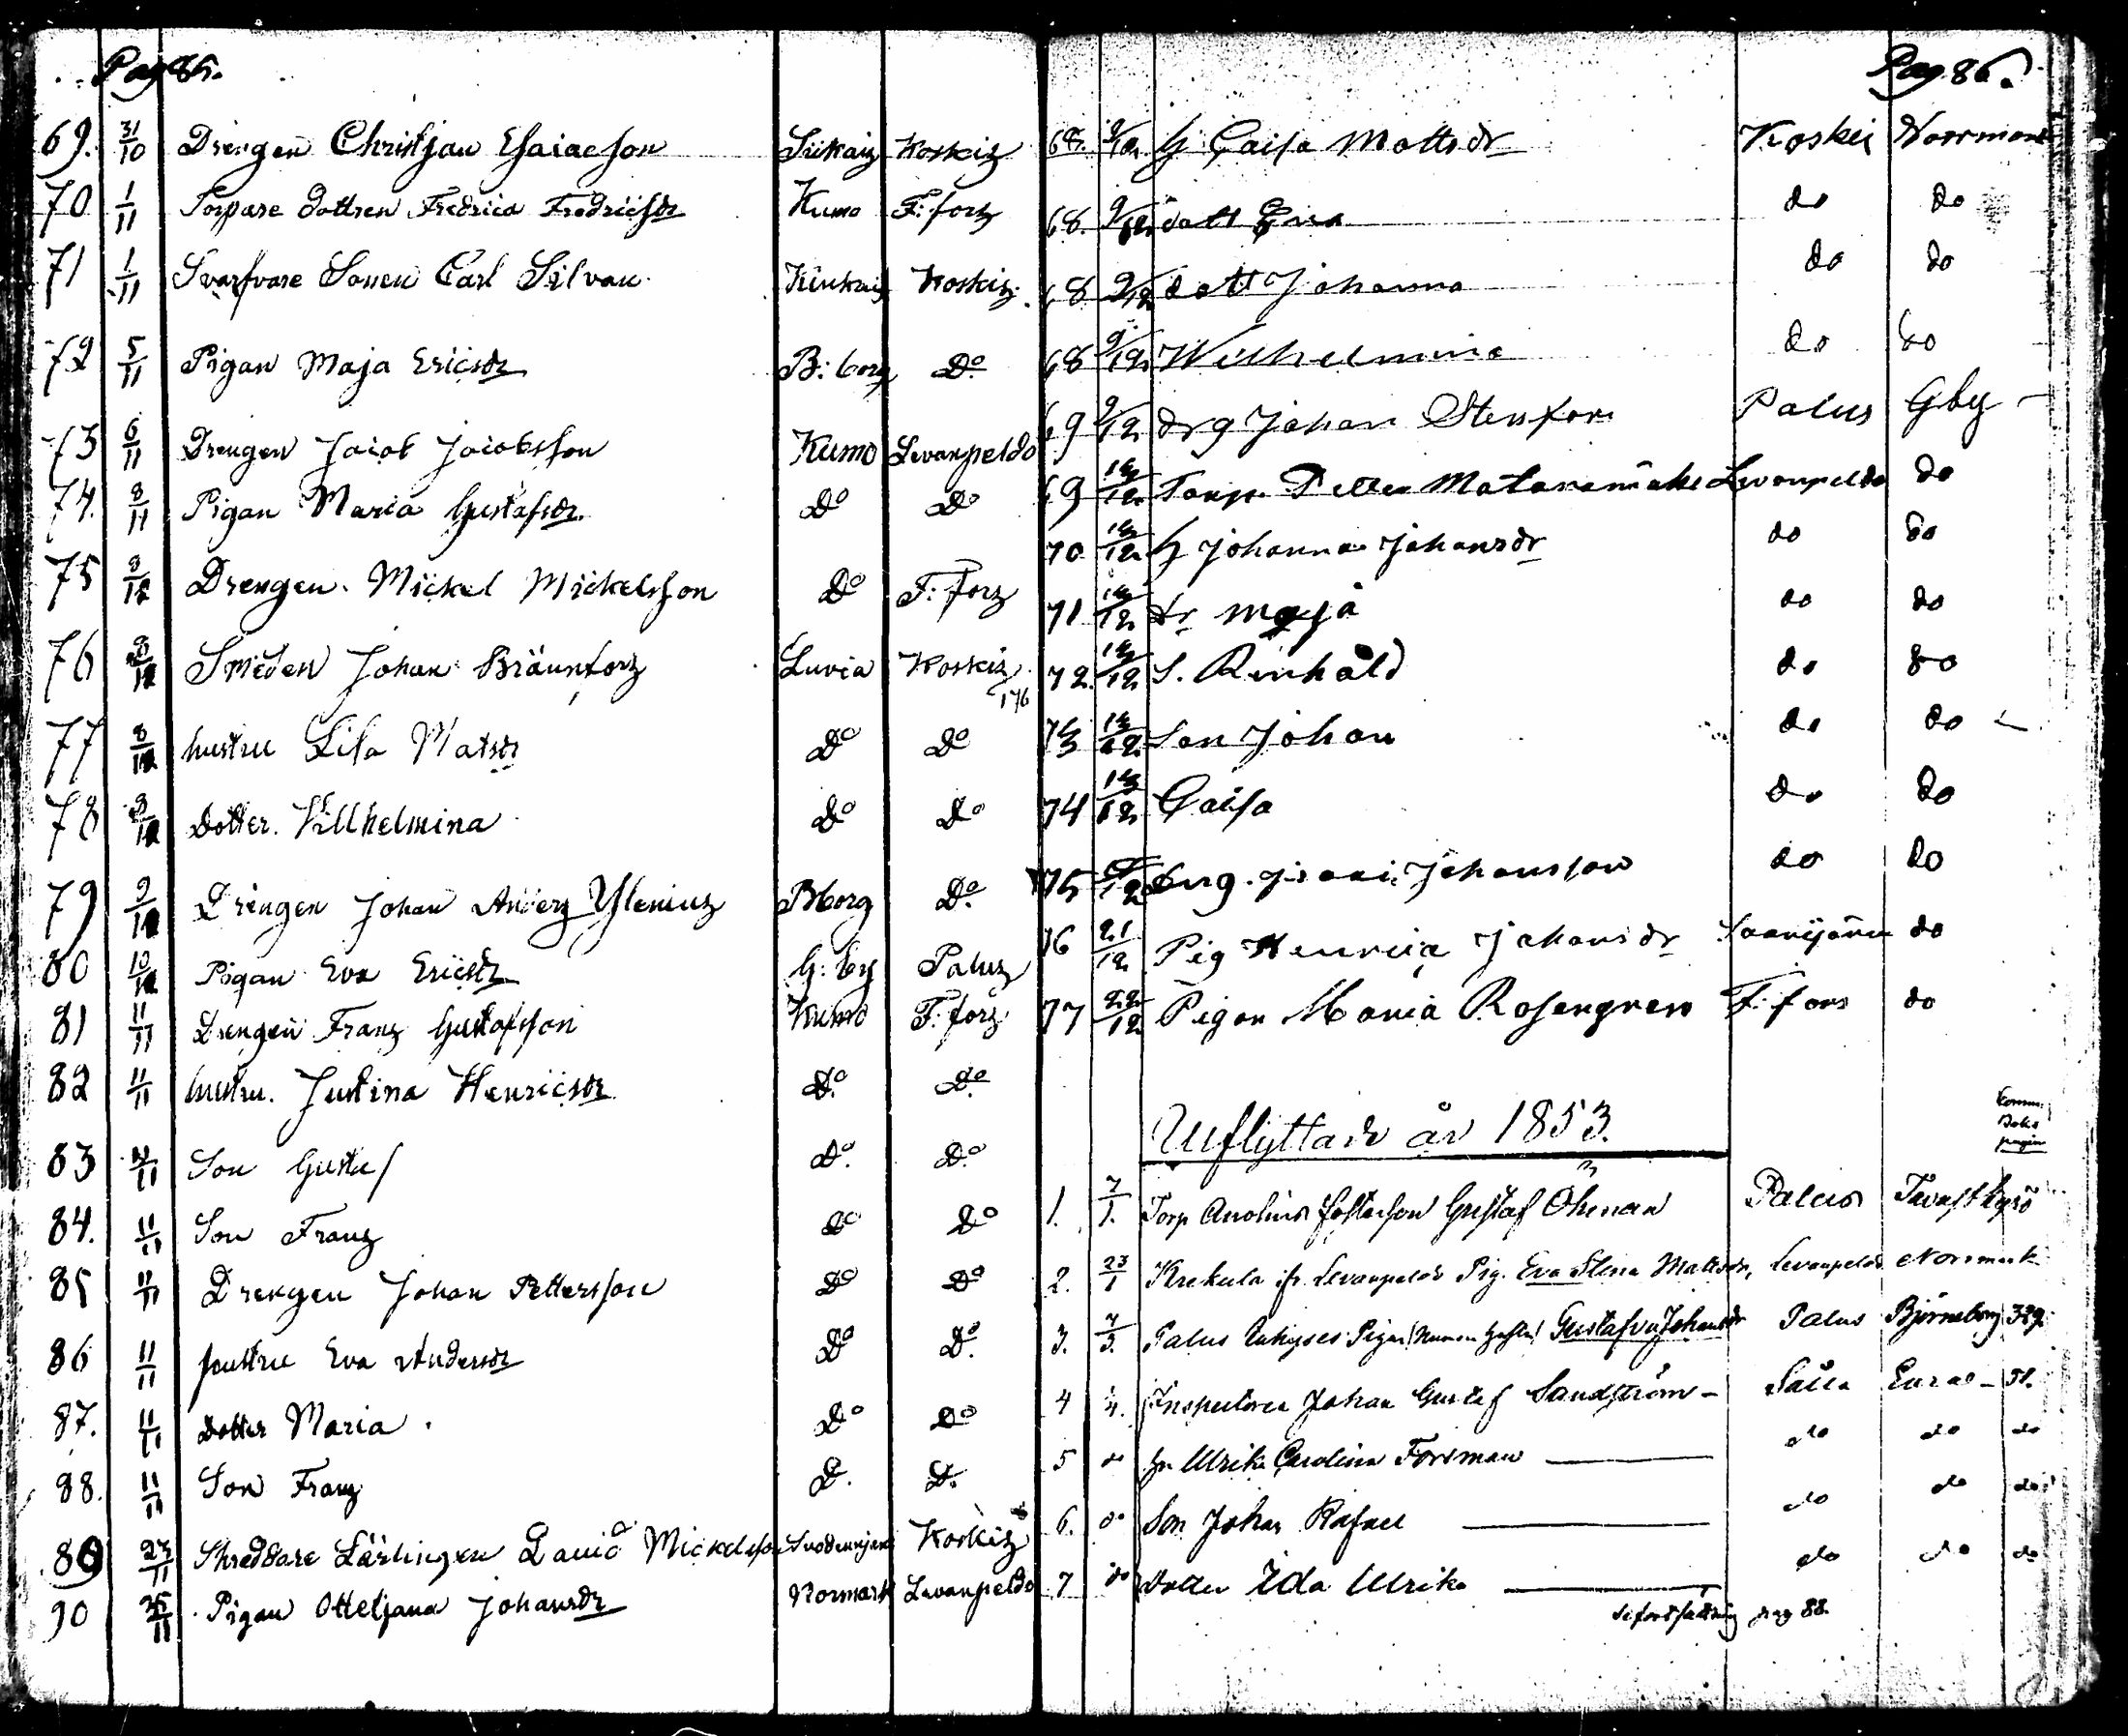 Pag 85.
69. 31/10 Drengen Christjan Esaiacson Koskis
70 1/11 Torpare dottren Fredrica Fredricsdr Kumo F: fors
71 1/11 Svarfvare Sonen Carl Silvan Kiukais Koskis
72 5/11 Pigan Maja Ericsdr B: borg Do
73 6/11 Drengen Jacob Jacobsson Kumo Levanpeldo
74. 8/11 Pigan Maria Gustafsdr Do Do
75 8/11 Drengen Mickel Mickelsson Do F: fors
76 8/11 Smeden Johan Luvia Koskis 176
77 8/11 hustru Lisa Matsdr Do Do
78 8/11 Dotter Villhelmina Do Do
79 9/11 Drengen Johan Anders Ylenius Bborg Do
80 10/11 Pigan Eva Ericsdr G: by Palus
81 11/11 Drengen Frans Gustafsson Kumo F: fors
82 11/11 hustru Justina Henricsdr Do Do
83 11/11 Son Gustaf Do. Do.
84. 11/11 Son Frans Do Do
85 11/11 Drengen Johan Pettersson Do Do
86 11/11 hustru Eva Andersdr Do Do.
87. 11/11 Dotter Maria Do Do
88. 11/11 Son Frans D. D.
89 23/11 Skreddare Lärlingen David Mickelsson Koskis
90 25/11 Pigan Ottetjana Johansdr Normark Levanpeldo
Pag. 86.
68. 9/12 h Caisa Mattsdr Koskis Norrmark
68. 9/12 dott do do
68 9/12 dott Johanna do do
68 9/12 Wilhelmina do do
69 9/12 drg Johan Stenfors Palus Gby
69 /12 Petter Matanemäke Levanpeldo do
70 /12 h Johanna Johansdr do do
71 /12 dr maja do do
72. /12 S. Rinhåld do do
73 /12 Son Johan do do
74 /12 Caisa do do
75 /12 drg. Johansson do do
76 21/12 Pig Henrica Johansdr do
77 22/12 Pigan Maria Rosengren F: fors do
Utflyttade år 1853.
Komm: Boks pagina
1. 7/1. Torp Fosterson Gustaf Öhman Palus
2. 23/1 Krekula ifr. Levanpeldo Pig. Eva Stina Mattsdr, Levanpeldo Norrmark
3. 7/3. Palus Pigan Gustafva Johansdr Palus Björneborg 329.
4 /4. Inspectoren Johan Gustaf Sandström - Eura - 51.
5 do hu Ulrika Carolina Forsman do do do
6. do Son Johan Rafael do do do
7 do dotter Ida Ulrika do do do
Se fortsättning pag 88.